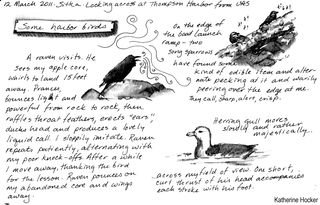 12 March 2011. Sitka. Looking across at Thompson Harbor from UAS
Some harbor birds
A raven visits. He
sees my apple core,
waits to land 15 feet
away. Prances,
bounces light and
powerful from rock to rock, then
ruffles throat feathers, erects "ears",
ducks head and produces a lovely
liquid call. I sloppily imitate. Raven
repeats patiently, alternating with
my poor knock-offs. After a while
I move away, thanking the bird
for the lesson. Raven pounces on
my abandoned core and wings
away.
On the edge of
the boat launch
ramp - two
song sparrows
have found some
kind of edible item and alter-
nate pecking at it and warily
peering over the edge at me.
They call, sharp, alert, crisp.
Herring gull moves
slowly and rather
majestically..
across my field of view. One short,
curt thrust of his head accompanies
each stroke with his foot.
Katherine Hocker